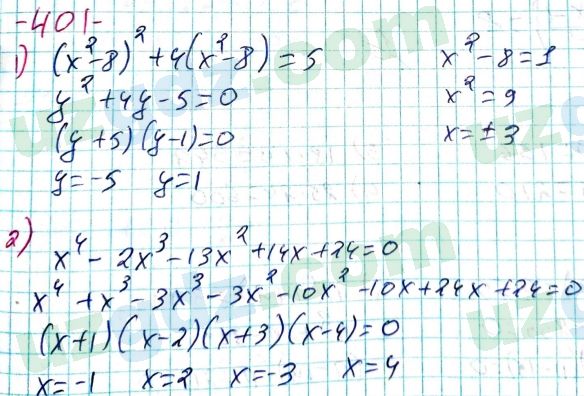 -401-
1) (x²-8)² + 4(x²-8) = 5
y² + 4y - 5 = 0
(y + 5)(y - 1) = 0
y = -5 y = 1
x² - 8 = 1
x² = 9
x = ± 3
2)
x⁴ - 2x³ - 13x² + 14x + 24 = 0
x⁴ + x³ - 3x³ - 3x² - 10x² - 10x + 24x + 24 = 0
(x+1)(x-2)(x+3)(x-4) = 0
x = -1 x = 2 x = -3 x = 4